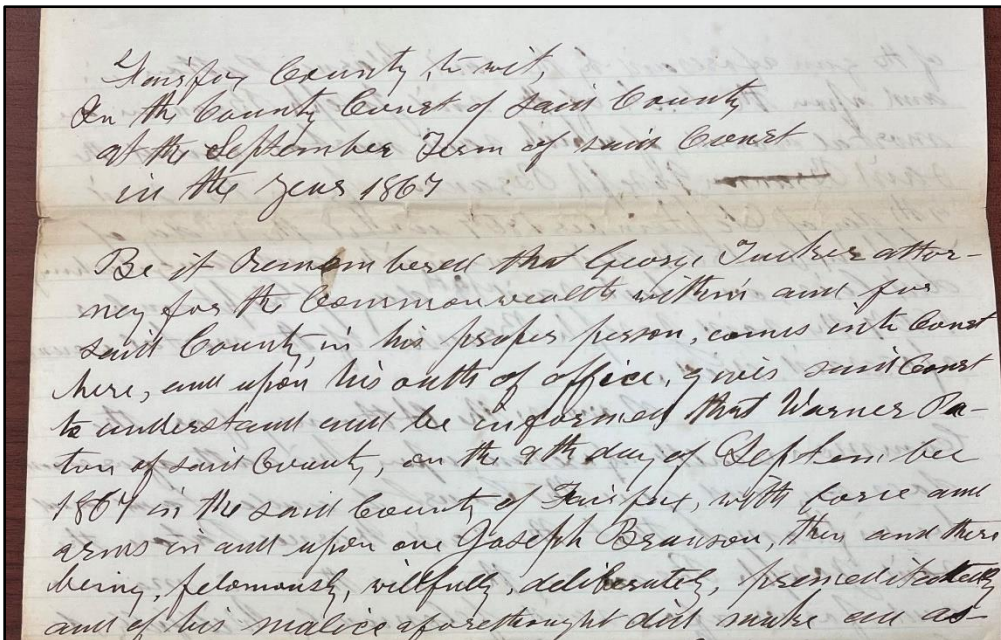 Fairfax County, to wit,
In the County Court of said County
at the September Term of said Court
in the year 1867
Be it Remembered that George Tucker attor-
ney for the Commonwealth within and for
said County, in his proper person, comes into Court
here, and upon his oath of office, gives said Court
to understand and be informed that Warner Pa-
ton of said County, on the 9th day of September
1867 in the said County of Fairfax, with force and
arms in and upon one Joseph Branson, then and there
being, feloniously, willfully, deliberately, premeditatedly
and of his malice aforethought did make an as-